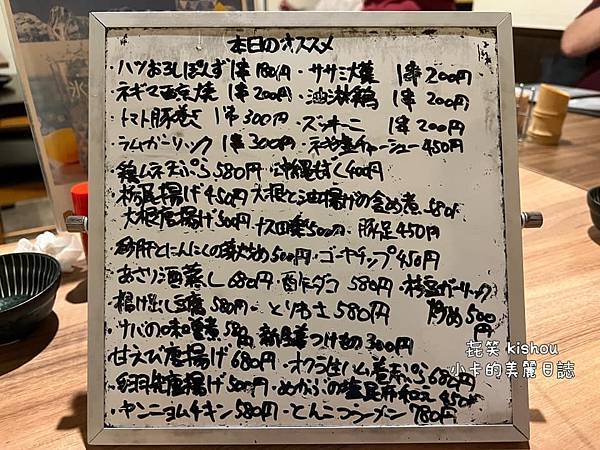 本日のオススメ
・ハツおろしぽんず 1串180円 ・ササミ大葉 1串200円
・ネギマ西京焼 1串200円 ・油淋鶏 1串200円
・トマト豚巻き 1串300円 ・ズッキーニ 1串200円
・ラムガーリック 1串300円 ・ネギ塩チャーシュー 450円
・鶏ムネ天ぷら580円 ・沖縄もずく400円
・栃尾揚げ450円 大根と油揚げの含め煮 580円
・大根唐揚げ500円 500円 ・豚足450円
・砂肝とにんにくの芽炒め500円 ・ゴーヤチップ450円
・あさり酒蒸し680円 ・酢ダコ 580円 ・枝豆ガーリック
炒め500円
・揚げ出し豆腐580円 ・とりわさ580円
・サバの味噌煮580円 つけもの300円
・甘えび唐揚げ680円 ・オクラ生ハム巻天ぷら680円
唐揚げ500円 ・めかぶの塩昆布和え 450円
・ヤンニョムチキン580円 ・とんこつラーメン 780円
㐂笑 kishou
小卡的美麗日誌